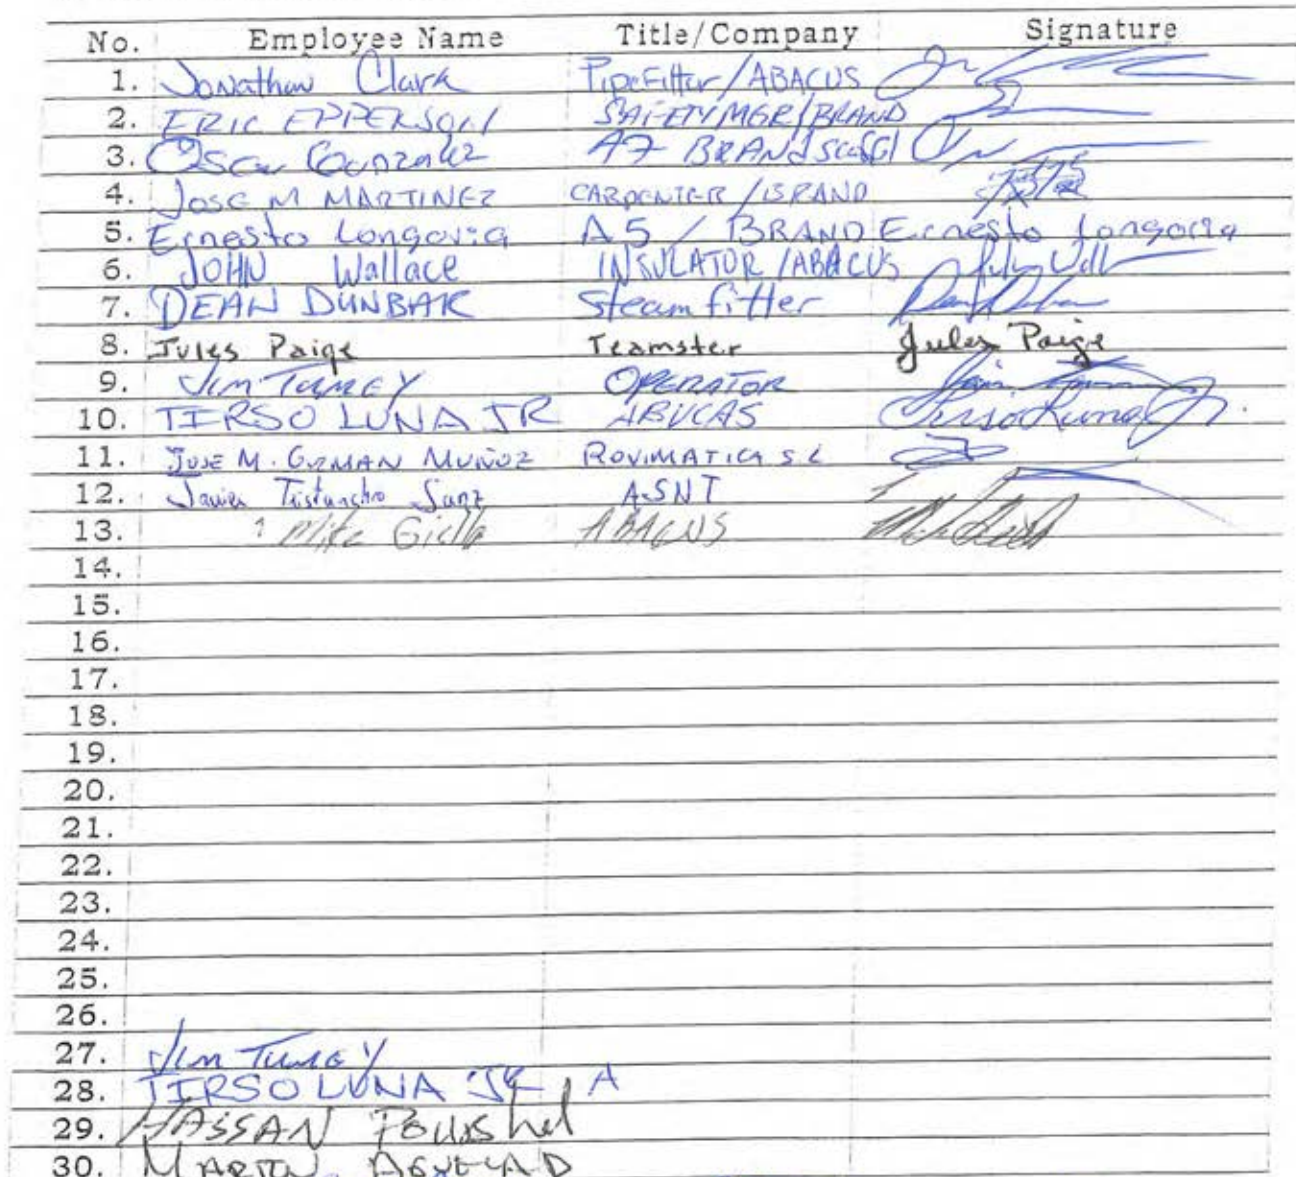 No. Employee Name Title/Company Signature
1. Jonathan Clark Pipefitter/ABACUS
2. ERIC EPPERSON SAFETY MGR/BRAND
3. Oscar Gonzalez A7 BRAND scaffl
4. JOSE M MARTINEZ CARPENTER/BRAND
5. Ernesto Longoria A5 / BRAND Ernesto Longoria
6. JOHN Wallace INSULATOR/ABACUS
7. DEAN DUNBAR Steamfitter
8. Jules Paige Teamster Jules Paige
9. Jim Tumey OPERATOR
10. TIRSO LUNA JR ABUCAS Tirso Luna Jr.
11. JOSE M. GUZMAN MUÑOZ ROVIMATICA S L
12. Javier Tristancho Sanz ASNT
13. Mike ABACUS
14.
15.
16.
17.
18.
19.
20.
21.
22.
23.
24.
25.
26.
27. Jim Tumey
28. TIRSO LUNA JR A
29. HASSAN
30. MARTIN